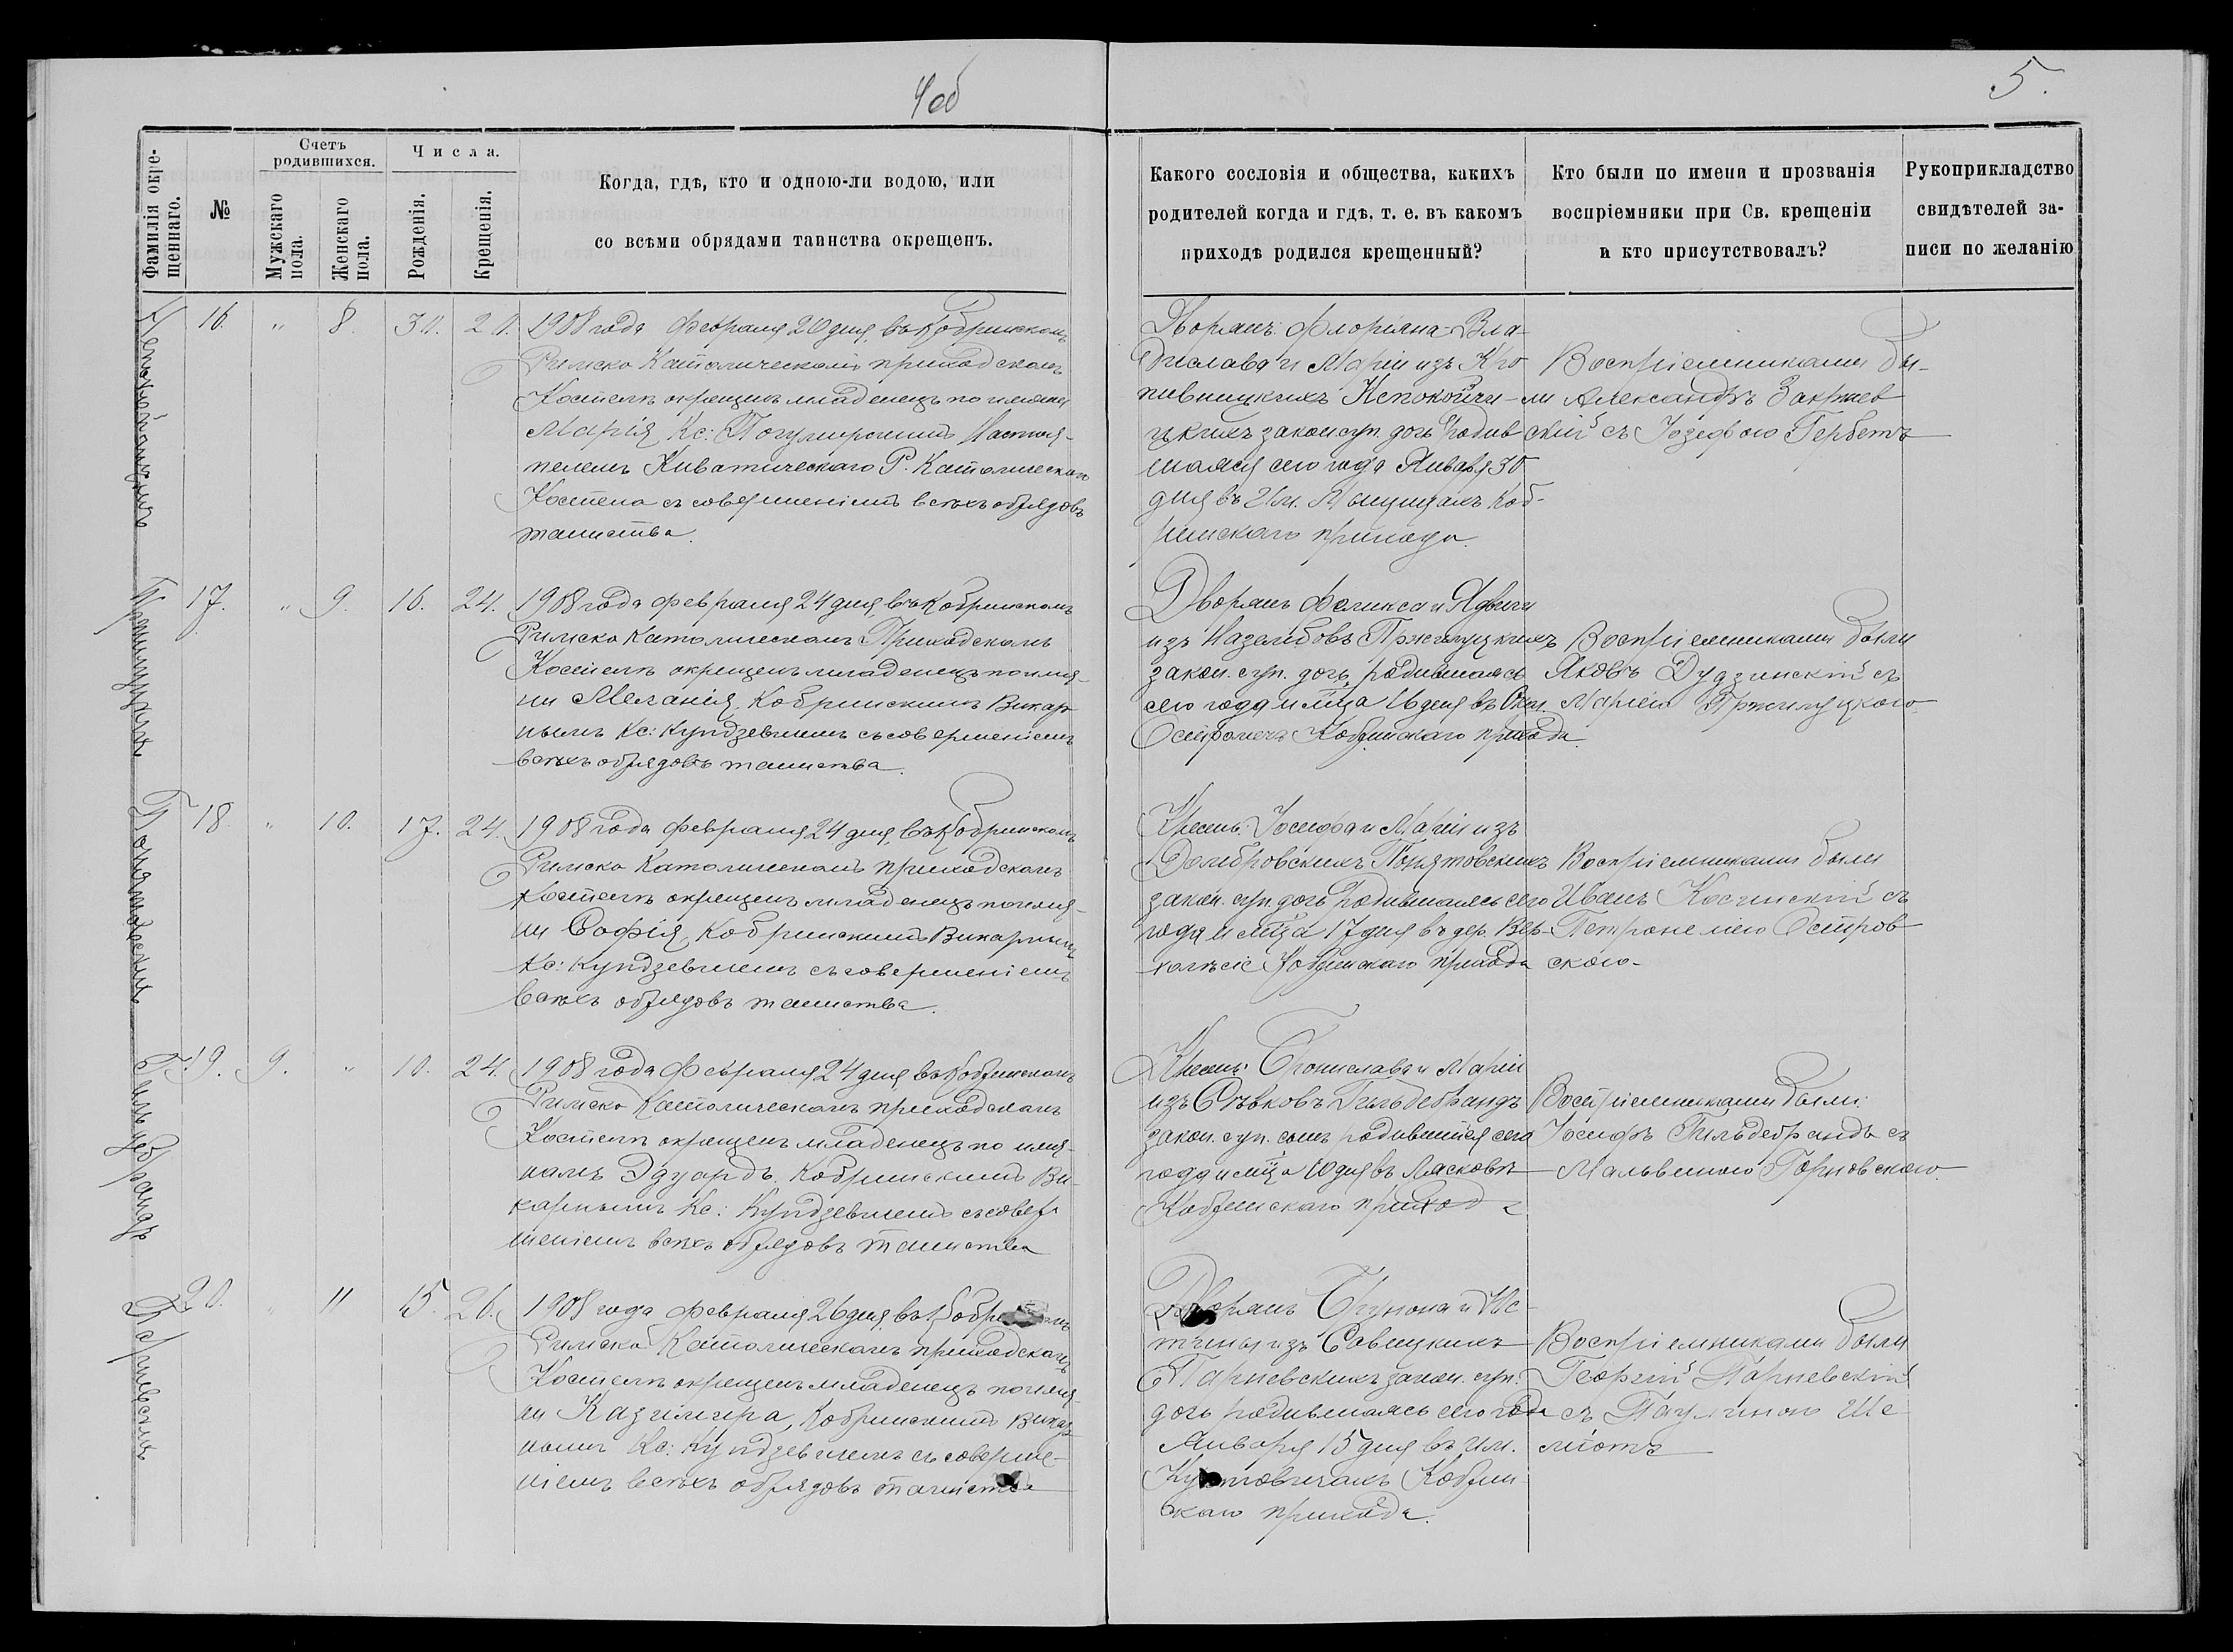 4об
5.
Фамилія окре-
щеннаго.
№
Счетъ
родившихся.
Мужскаго
пола.
Женскаго
пола.
Числа.
Рожденія.
Крещенія.
Когда, гдѣ, кто и одною-ли водою, или
со всѣми обрядами таинства окрещенъ.
Какого сословія и общества, какихъ
родителей когда и гдѣ, т. е. въ какомъ
приходѣ родился крещенный?
Кто были по имени и прозванія
воспріемники при Св. крещеніи
и кто присутствовалъ?
Рукоприкладство
свидѣтелей за-
писи по желанію
16. " 8. 30. 20.
1908 года февраля 20 дня, въ Кобринскомъ
Римско Католическомъ приходскомъ
Костелѣ окрещенъ младенецъ по имени
Марія, Кс: Настоя-
телемъ Р. Католическаго
Костела съ совершеніемъ всѣхъ обрядовъ
таинства.
Дворянъ: Флоріяна-Вла-
дислава и Маріи изъ Кро
пивницкихъ Непокойчи-
цкихъ закон. суп. дочь родив
шаяся сего года Января 30
дня въ Им. Коб-
ринскаго прихода.
Воспріемниками бы-
ли Александръ Закржев
скій съ Іозефою Гербетъ
Пржилуцкая
17. " 9. 16. 24.
1908 года февраля 24 дня, въ Кобринскомъ
Римско Католическомъ Приходскомъ
Костелѣ окрещенъ младенецъ по име-
ни Меланія, Кобринскимъ Викар
нымъ Кс: Кундзевичемъ съ совершеніемъ
всѣхъ обрядовъ таинства.
Дворянъ Феликса и Ядвиги
изъ Пржилуцкихъ
закон. суп. дочь, родившаяся
сего года и мѣца 16 дня въ
Кобринскаго прихода.
Воспріемниками были
Яковъ Дудзинскій съ
Маріею Пржилуцкою.
Понятовская
18. " 10. 17. 24.
1908 года февраля 24 дня, въ Кобринскомъ
Римско Католическомъ приходскомъ
Костелѣ окрещенъ младенецъ по име-
ни Софія, Кобринскимъ Викарнымъ
Кс: Кундзевичемъ съ совершеніемъ
всѣхъ обрядовъ таинства.
Кресть: Іосифа и Маріи изъ
Домбровскихъ Понятовскихъ
закон. суп. дочь родившаяся сего
года и мѣца 17 дня въ дер. Вер-
холѣсіе Кобринскаго прихода
Воспріемниками были
Иванъ Косинскій съ
Петронелею Остров
скою-
Гильдебрандъ
19. 9. " 10. 24.
1908 года Февраля 24 дня, въ Кобринскомъ
Римско Католическомъ приходскомъ
Костелѣ окрещенъ младенецъ по име-
намъ Эдуардъ, Кобринскимъ Ви-
карнымъ Кс: Кундзевичемъ съ совер
шеніемъ всѣхъ обрядовъ таинства
Кресть: Бронислава и Маріи
изъ Гильдебрандъ
закон. суп. сынъ родившійся сего
года и мѣца 10 дня въ Лясковѣ
Кобринскаго прихода
Воспріемниками были:
Іосифъ Гильдебрандъ съ
Мальвиною Горновскою.
20. " 11 15. 26.
1908 года февраля 26 дня, въ
Римско Католическомъ приходскомъ
Костелѣ окрещенъ младенецъ по име-
ни Казимира, Кобринскимъ Викар
нымъ Кс: Кундзевичемъ съ соверше-
ніемъ всѣхъ обрядовъ таинства
Дворянъ Брунона и Ис-
тины изъ Савицкихъ
Парневскихъ закон. суп.
дочь родившаяся сего года
Января 15 дня въ им.
Кобрин
скаго прихода.
Воспріемниками были
Георгій Парневскій
съ Паулиною Ше